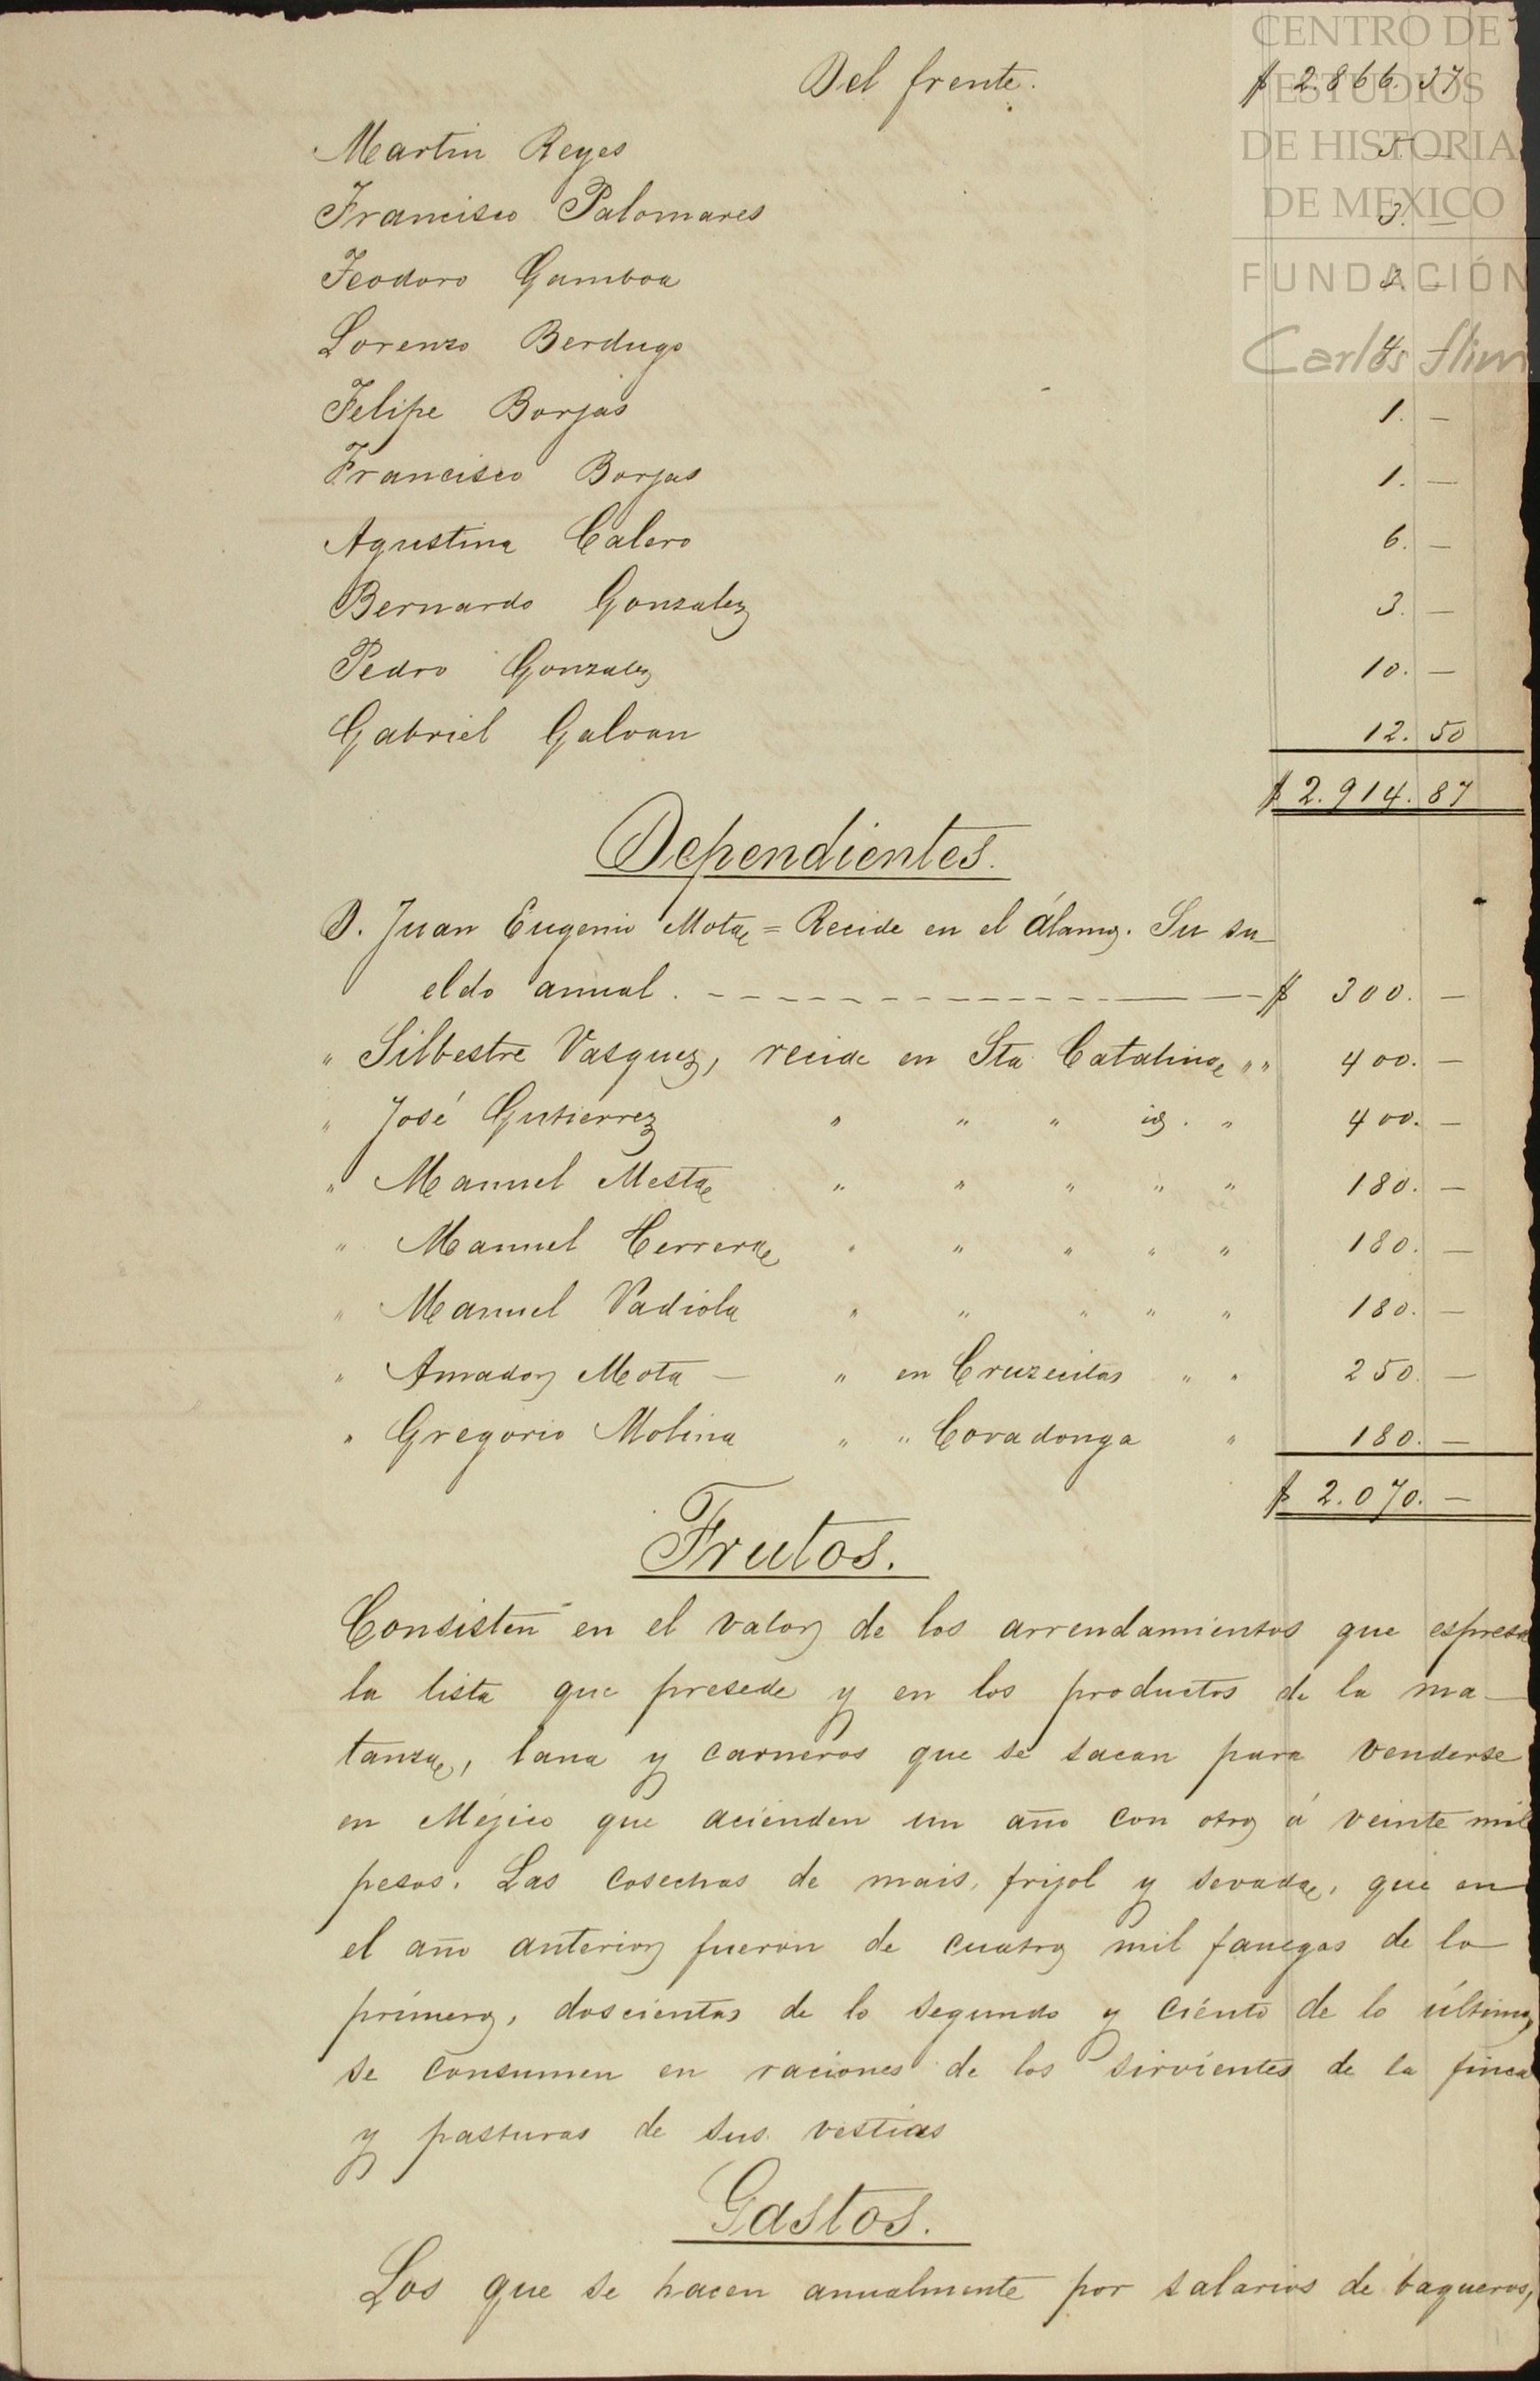 CENTRO DE
ESTUDIOS
DE HISTORIA
DE MEXICO
FUNDACIÓN
Carlos Slim
Del frente. $ 2.866. 37
Martin Reyes 5. —
Francisco Palomares 3. —
Teodoro Gamboa 3. —
Lorenzo Berdugo 4. —
Felipe Borjas 1. —
Francisco Borjas 1. —
Agustina Calero 6. —
Bernardo Gonzalez 3. —
Pedro Gonzalez 10. —
Gabriel Galvan 12. 50
$ 2.914. 87
Dependientes.
D. Juan Eugenio Mota = Recide en el Álamo. Su su-
eldo anual. - - - - - - - - - - - - - - - — — $ 300. —
" Silbestre Vasquez, recide en Sta Catalina " " 400. —
" José Gutierrez " " " id. " 400. —
" Manuel Mesta " " " " " 180. —
" Manuel Herrera " " " " " 180. —
" Manuel Vadiola " " " " " 180. —
" Amador Mota — " en Cruzecitas " " 250. —
" Gregorio Molina " " Covadonga " 180. —
$ 2.070. —
Frutos.
Consisten en el valor de los arrendamientos que espresa
la lista que presede y en los productos de la ma-
tanza, lana y carneros que se sacan para venderse
en Méjico que acienden un año con otro á veinte mil
pesos. Las cosechas de mais, frijol y sevada, que en
el año anterior fueron de cuatro mil fanegas de lo
primero, doscientas de lo segundo y ciento de lo último,
se consumen en raciones de los sirvientes de la finca
y pasturas de sus vestias
Gastos.
Los que se hacen anualmente por salarios de baqueros,